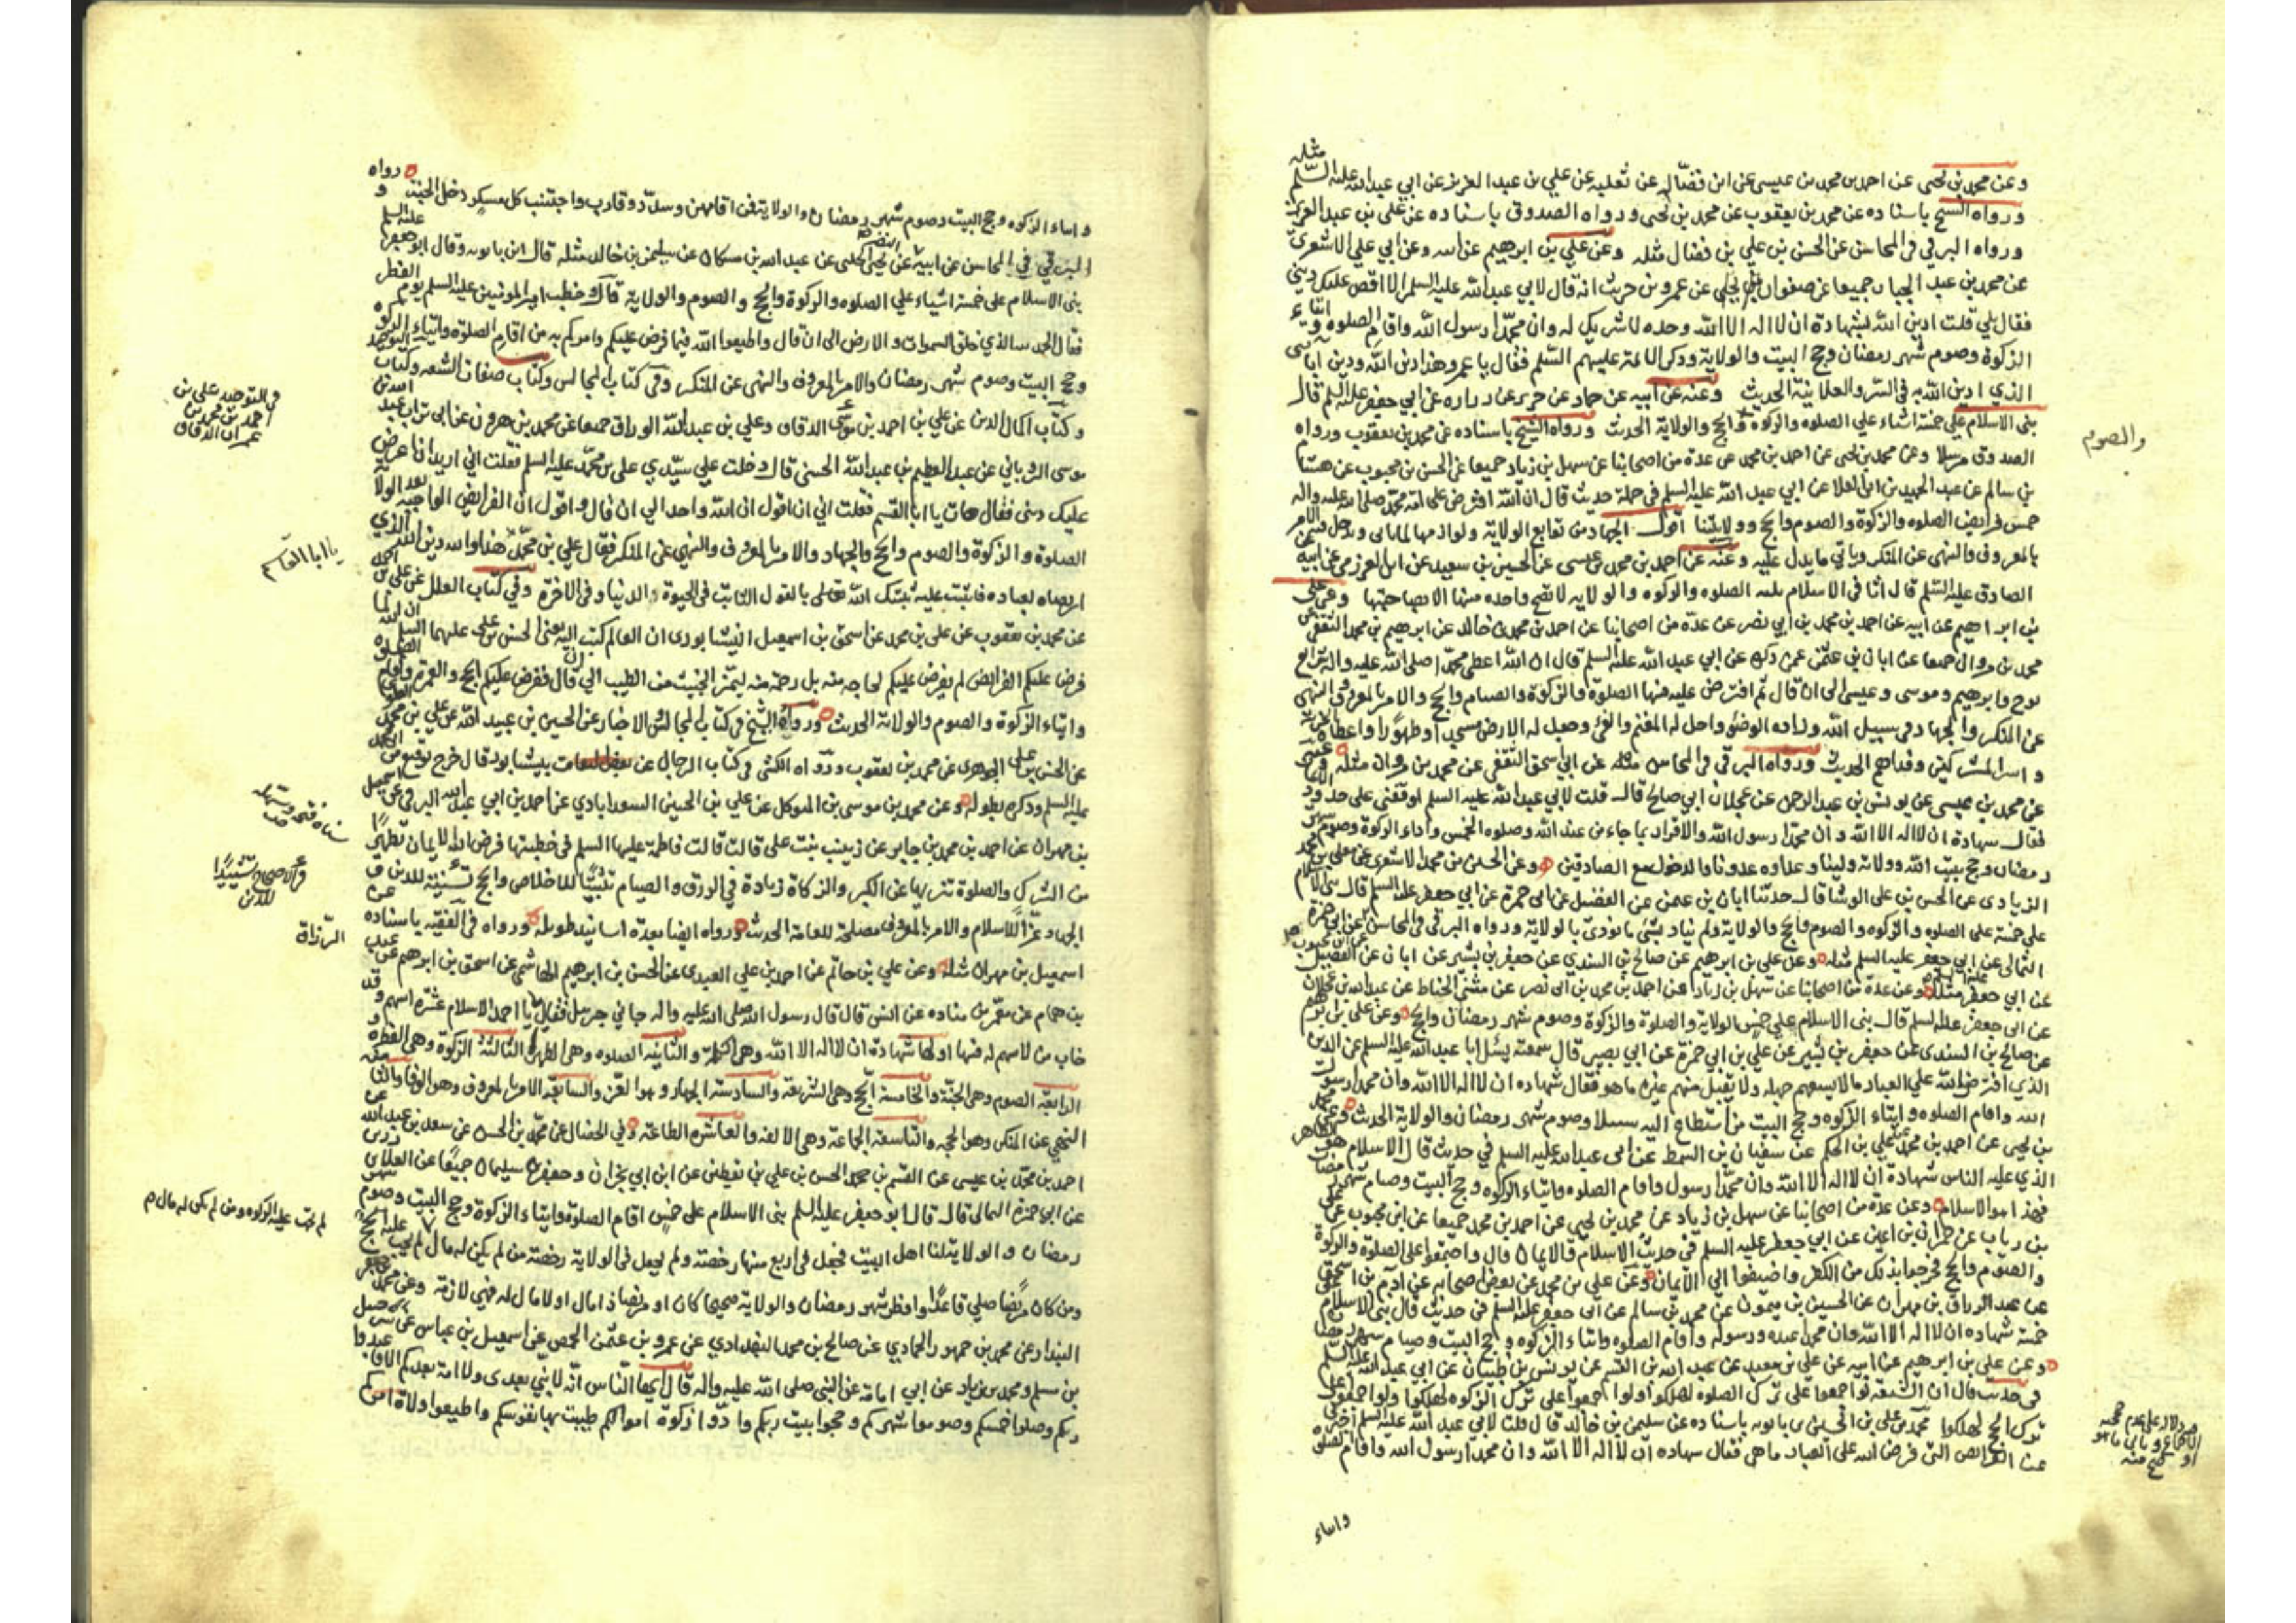 وعن محمد بن يحيى عن احمد بن محمد بن عيسى عن ابن فضال عن ثعلبه عن علي بن عبد العزيز عن ابي عبد الله عليه السلام مثله
ورواه الشيخ باسناده عن محمد بن يعقوب عن محمد بن يحيى ورواه الصدوق باسناده عن علي بن عبد العزيز
ورواه البرقي في المحاسن عن الحسن بن علي بن فضال مثله وعن علي بن ابرهيم عن ابيه وعن ابي علي الاشعري
عن محمد بن عبد الجبار جميعا عن صفوان عن عمرو بن حريث انه قال لابي عبد الله عليه السلم الا اقص عليك ديني
فقال بلى قلت ادين الله بشهادة ان لا اله الا الله وحده لا شريك له وان محمدا رسول الله واقام الصلوه وايتاء
الزكوة وصوم شهر رمضان وحج البيت والولاية وذكر الائمة عليهم السلم فقال يا عمرو هذا دين الله ودين ابائي
الذي ادين الله به في السر والعلانية الحديث وعنه عن ابيه عن حماد عن حريز عن زراره عن ابي جعفر عليه السلم قال
بنى الاسلام على خمسة اشياء على الصلوه والزكوه والحج والولاية الحديث ورواه الشيخ باسناده عن محمد بن يعقوب ورواه
والصوم
الصدوق مرسلا وعن محمد بن يحيى عن احمد بن محمد عن عدة من اصحابنا عن سهل بن زياد جميعا عن الحسن بن محبوب عن هشام
بن سالم عن عبد الحميد بن ابي العلا عن ابي عبد الله عليه السلم في جملة حديث قال ان الله افترض على امة محمد صلى الله عليه واله
خمس فرايض الصلوه والزكوة والصوم والحج وولايتنا اقول الجهاد من توابع الولاية ولوازمها لما ياتي ويدخل فيه الامر
بالمعروف والنهى عن المنكر وياتي ما يدل عليه وعنه عن احمد بن محمد بن عيسى عن الحسين بن سعيد عن ابن العرزمي عن ابيه
الصادق عليه السلم قال اثافي الاسلام ثلثه الصلوه والزكوه والولايه لا تصح واحده منها الا بصاحبتها وعن علي
بن ابراهيم عن ابيه عن احمد بن محمد بن ابي نصر عن عدة من اصحابنا عن احمد بن محمد بن خالد عن ابرهيم بن محمد الثقفي
محمد بن مروان جميعا عن ابان بن عثمن عمن ذكره عن ابي عبد الله عليه السلم قال ان الله اعطى محمدا صلى الله عليه واله شرايع
نوح وابرهيم وموسى وعيسى الى ان قال ثم افترض عليه منها الصلوة والزكوة والصيام والحج والامر بالمعروف والنهى
عن المنكر والجهاد في سبيل الله وزاده الوضوء واحل له المغنم والفئ وجعل له الارض مسجدا وطهورا واعطاه الجزية
واسر المشركين وفداهم الحديث ورواه البرقي في المحاسن مثله عن ابي اسحق الثقفي عن محمد بن مروان مثله
عن محمد بن عيسى عن يونس بن عبد الرحمن عن عجلان ابي صالح قال قلت لابي عبد الله عليه السلم اوقفني على حدود
فقال شهادة ان لا اله الا الله وان محمدا رسول الله والاقرار بما جاء من عند الله وصلوه الخمس واداء الزكوة وصوم شهر
رمضان وحج بيت الله وولاية ولينا وعداوه عدونا والدخول مع الصادقين وعن الحسين بن محمد الاشعري عن معلى بن محمد
الزيادي عن الحسن بن علي الوشا قال حدثنا ابان بن عثمن عن الفضيل عن ابي حمزة عن ابي جعفر عليه السلم قال بني الاسلام
على خمسة على الصلوه والزكوه والصوم والحج والولاية ولم يناد بشئ ما نودى بالولاية ورواه البرقي في المحاسن عن ابي حمزة
الثمالي عن ابي جعفر عليه السلم مثله وعن علي بن ابرهيم عن صالح بن السندي عن جعفر بن بشير عن ابان عن الفضيل
عن ابي جعفر عليه السلم مثله وعن عدة من اصحابنا عن سهل بن زياد عن احمد بن محمد بن ابي نصر عن مثنى الحناط عن عبد الله بن عجلان
عن ابي جعفر عليه السلم قال بنى الاسلام على خمس الولاية والصلوة والزكوة وصوم شهر رمضان والحج وعن علي بن ابرهيم
عن صالح بن السندي عن جعفر بن بشير عن علي بن ابي حمزة عن ابي بصير قال سمعته يسئل ابا عبد الله عليه السلم عن الدين
الذي افترض الله على العباد ما لا يسعهم جهله ولا يقبل منهم غيره ما هو فقال شهاده ان لا اله الا الله وان محمدا رسول
الله واقام الصلوه وايتاء الزكوه وحج البيت من استطاع اليه سبيلا وصوم شهر رمضان والولاية الحديث وعن محمد
بن يحيى عن احمد بن محمد عن علي بن الحكم عن سفيان بن السمط عن ابي عبد الله عليه السلم في حديث قال الاسلام هو الظاهر
الذي عليه الناس شهادة ان لا اله الا الله وان محمدا رسول واقام الصلوه وايتاء الزكوه وحج البيت وصيام شهر رمضان
فهذا هو الاسلام وعن عدة من اصحابنا عن سهل بن زياد عن محمد بن يحيى عن احمد بن محمد جميعا عن ابن محبوب عن علي
بن رياب عن حمران بن اعين عن ابي جعفر عليه السلم في حديث الاسلام والايمان قال واجتمعوا على الصلوة والزكوة
والصوم والحج فخرجوا بذلك من الكفر واضيفوا الى الايمان وعن علي بن محمد عن بعض اصحابه عن ادم بن اسحق
عن عبد الرزاق بن مهران عن الحسين بن ميمون عن محمد بن سالم عن ابي جعفر عليه السلم في حديث قال بنى الاسلام على
خمسة شهاده ان لا اله الا الله وان محمدا عبده ورسوله واقام الصلوه وايتاء الزكوه وحج البيت وصيام شهر رمضان
وعن علي بن ابرهيم عن ابيه عن علي بن معبد عن عبد الله بن القسم عن يونس بن ظبيان عن ابي عبد الله عليه السلم
في حديث قال ان الشيعه لو اجمعوا على ترك الصلوه لهلكوا ولو اجمعوا على ترك الزكوه لهلكوا ولو اجمعوا على
ترك الحج لهلكوا محمد بن علي بن الحسين بن بابويه باسناده عن سليمن بن خالد قال قلت لابي عبد الله عليه السلم اخبرني
عن الفرائض التي فرض الله على العباد ما هي فقال شهاده ان لا اله الا الله وان محمدا رسول الله واقام الصلوة
وايتاء
وايتاء الزكوه وحج البيت وصوم شهر رمضان والولاية فمن اقامهن وسدد وقارب واجتنب كل مسكر دخل الجنة ورواه
البرقي في المحاسن عن ابيه عن النضر عن يحيى الحلبي عن عبد الله بن مسكان عن سليمن بن خالد مثله قال ابن بابويه وقال ابو جعفر عليه السلم
بنى الاسلام على خمسة اشياء على الصلوه والزكوة والحج والصوم والولاية قال وخطب امير المومنين عليه السلم يوم الفطر
فقال الحمد لله الذي خلق السموات والارض الى ان قال واطيعوا الله فيما فرض عليكم وامركم به من اقام الصلوة وايتاء الزكوه
وحج البيت وصوم شهر رمضان والامر بالمعروف والنهى عن المنكر وفي كتاب المجالس وكتاب صفات الشيعه وكتاب التوحيد
وكتاب اكمال الدين عن علي بن احمد بن موسى الدقاق وعلي بن عبد الله الوراق جميعا عن محمد بن هرون عن ابي تراب عبيد الله بن
في التوحيد علي بن
احمد بن محمد بن
عمران الدقاق
موسى الروياني عن عبد العظيم بن عبد الله الحسني قال دخلت على سيدي علي بن محمد عليه السلم فقلت اني اريد ان اعرض
عليك ديني فقال هات يا ابا القسم فقلت اني اقول ان الله واحد الى ان قال واقول ان الفرايض الواجبه بعد الولاية
الصلوة والزكوة والصوم والحج والجهاد والامر بالمعروف والنهى عن المنكر فقال علي بن محمد هذا والله دين الله الذي
يا ابا القاسم
ارتضاه لعباده فاثبت عليه ثبتك الله تعالى بالقول الثابت في الحيوة الدنيا وفي الاخرة وفي كتاب العلل عن علي بن احمد
عن محمد بن يعقوب عن علي بن محمد عن اسحق بن اسمعيل النيشابوري ان العالم كتب اليه يعني الحسن بن علي عليهما السلم ان الله لما
فرض عليكم الفرايض لم يفرض عليكم لحاجه منه بل رحمة منه ليميز الخبيث من الطيب الى ان قال ففرض عليكم الحج والعمرة واقام الصلوة
وايتاء الزكوة والصوم والولاية الحديث ورواه الشيخ في كتاب المجالس والاخبار عن الحسين بن عبيد الله عن علي بن محمد العلوي
عن الحسن بن علي الجوهري عن محمد بن يعقوب ورواه الكشي في كتاب الرجال عن بعض الثقات بنيشابور قال خرج توقيع من ابي محمد
عليه السلم وذكره بطوله وعن محمد بن موسى بن المتوكل عن علي بن الحسين السعدابادي عن احمد بن ابي عبد الله البرقي عن اسمعيل
بن مهران عن احمد بن محمد بن جابر عن زينب بنت علي قالت قالت فاطمة عليها السلم في خطبتها فرض الله الايمان تطهيرا
من الشرك والصلوة تنزيها عن الكبر والزكاة زيادة في الرزق والصيام تثبيتا للاخلاص والحج تسنية للدين
والجهاد عزا للاسلام والامر بالمعروف مصلحة للعامة الحديث ورواه ايضا بعدة اسانيد طويلة ورواه في الفقيه باسناده عن
اسمعيل بن مهران مثله وعن علي بن حاتم عن احمد بن علي العبدي عن الحسن بن ابرهيم الهاشمي عن اسحق بن ابرهيم عن عبد
الرزاق
بن همام عن معمر بن قتاده عن انس قال قال رسول الله صلى الله عليه واله جاءني جبرئيل فقال يا احمد الاسلام عشرة اسهم وقد
خاب من لا سهم له فيها اولها شهادة ان لا اله الا الله وهي الكلمة والثانيه الصلوه وهي الطهر والثالثة الزكوة وهي الفطره
والرابعة الصوم وهي الجنة والخامسة الحج وهي الشريعة والسادسة الجهاد وهو العز والسابعة الامر بالمعروف وهو الوفا والثامنه
النهي عن المنكر وهو الحجه والتاسعة الجماعة وهي الالفة والعاشره الطاعة وفي الخصال عن محمد بن الحسن عن سعد بن عبد الله عن
احمد بن محمد بن عيسى عن القسم بن محمد الحسن بن علي بن يقطين عن ابن ابي نجران وجعفر بن سليمان جميعا عن العلا بن رزين
عن ابي حمزة الثمالي قال قال ابو جعفر عليه السلم بنى الاسلام على خمس اقام الصلوة وايتاء الزكوة وحج البيت وصوم شهر
رمضان والولاية لنا اهل البيت فجعل في اربع منها رخصة ولم يجعل في الولاية رخصة من لم يكن له مال لم يجب عليه الحج
لم تجب عليه الزكوه ومن لم يكن له مال م
ومن كان مريضا صلى قاعدا وافطر شهر رمضان والولاية صحيحا كان او مريضا ذا مال او لا مال له فهي لازمة وعن محمد بن جعفر
البندار عن محمد بن جمهور الحمادي عن صالح بن محمد البغدادي عن عمرو بن عثمن الحمصي عن اسمعيل بن عياش عن شرحبيل
بن مسلم ومحمد بن زياد عن ابي امامة عن النبي صلى الله عليه واله قال ايها الناس انه لا نبي بعدي ولا امة بعدكم الا فاعبدوا
ربكم وصلوا خمسكم وصوموا شهركم وحجوا بيت ربكم وادوا زكوة اموالكم طيبت بها نفوسكم واطيعوا ولاة امركم